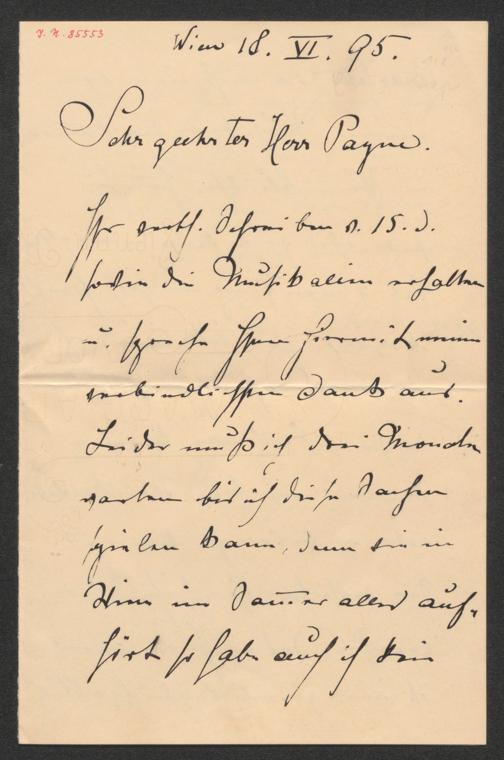 I. N. 85553
Wien 18. VI. 95.
Sehr geehrter Herr Payne.
Ihr werth. Schreiben v. 15. d.
sowie die Musikalien erhalten
u. spreche Ihnen hiermit meinen
verbindlichsten Dank aus.
Leider muß ich drei Monate
warten bis ich diese Sachen
spielen kann, denn wie in
Wien im Som̅er alles auf-
hört so habe auch ich kein